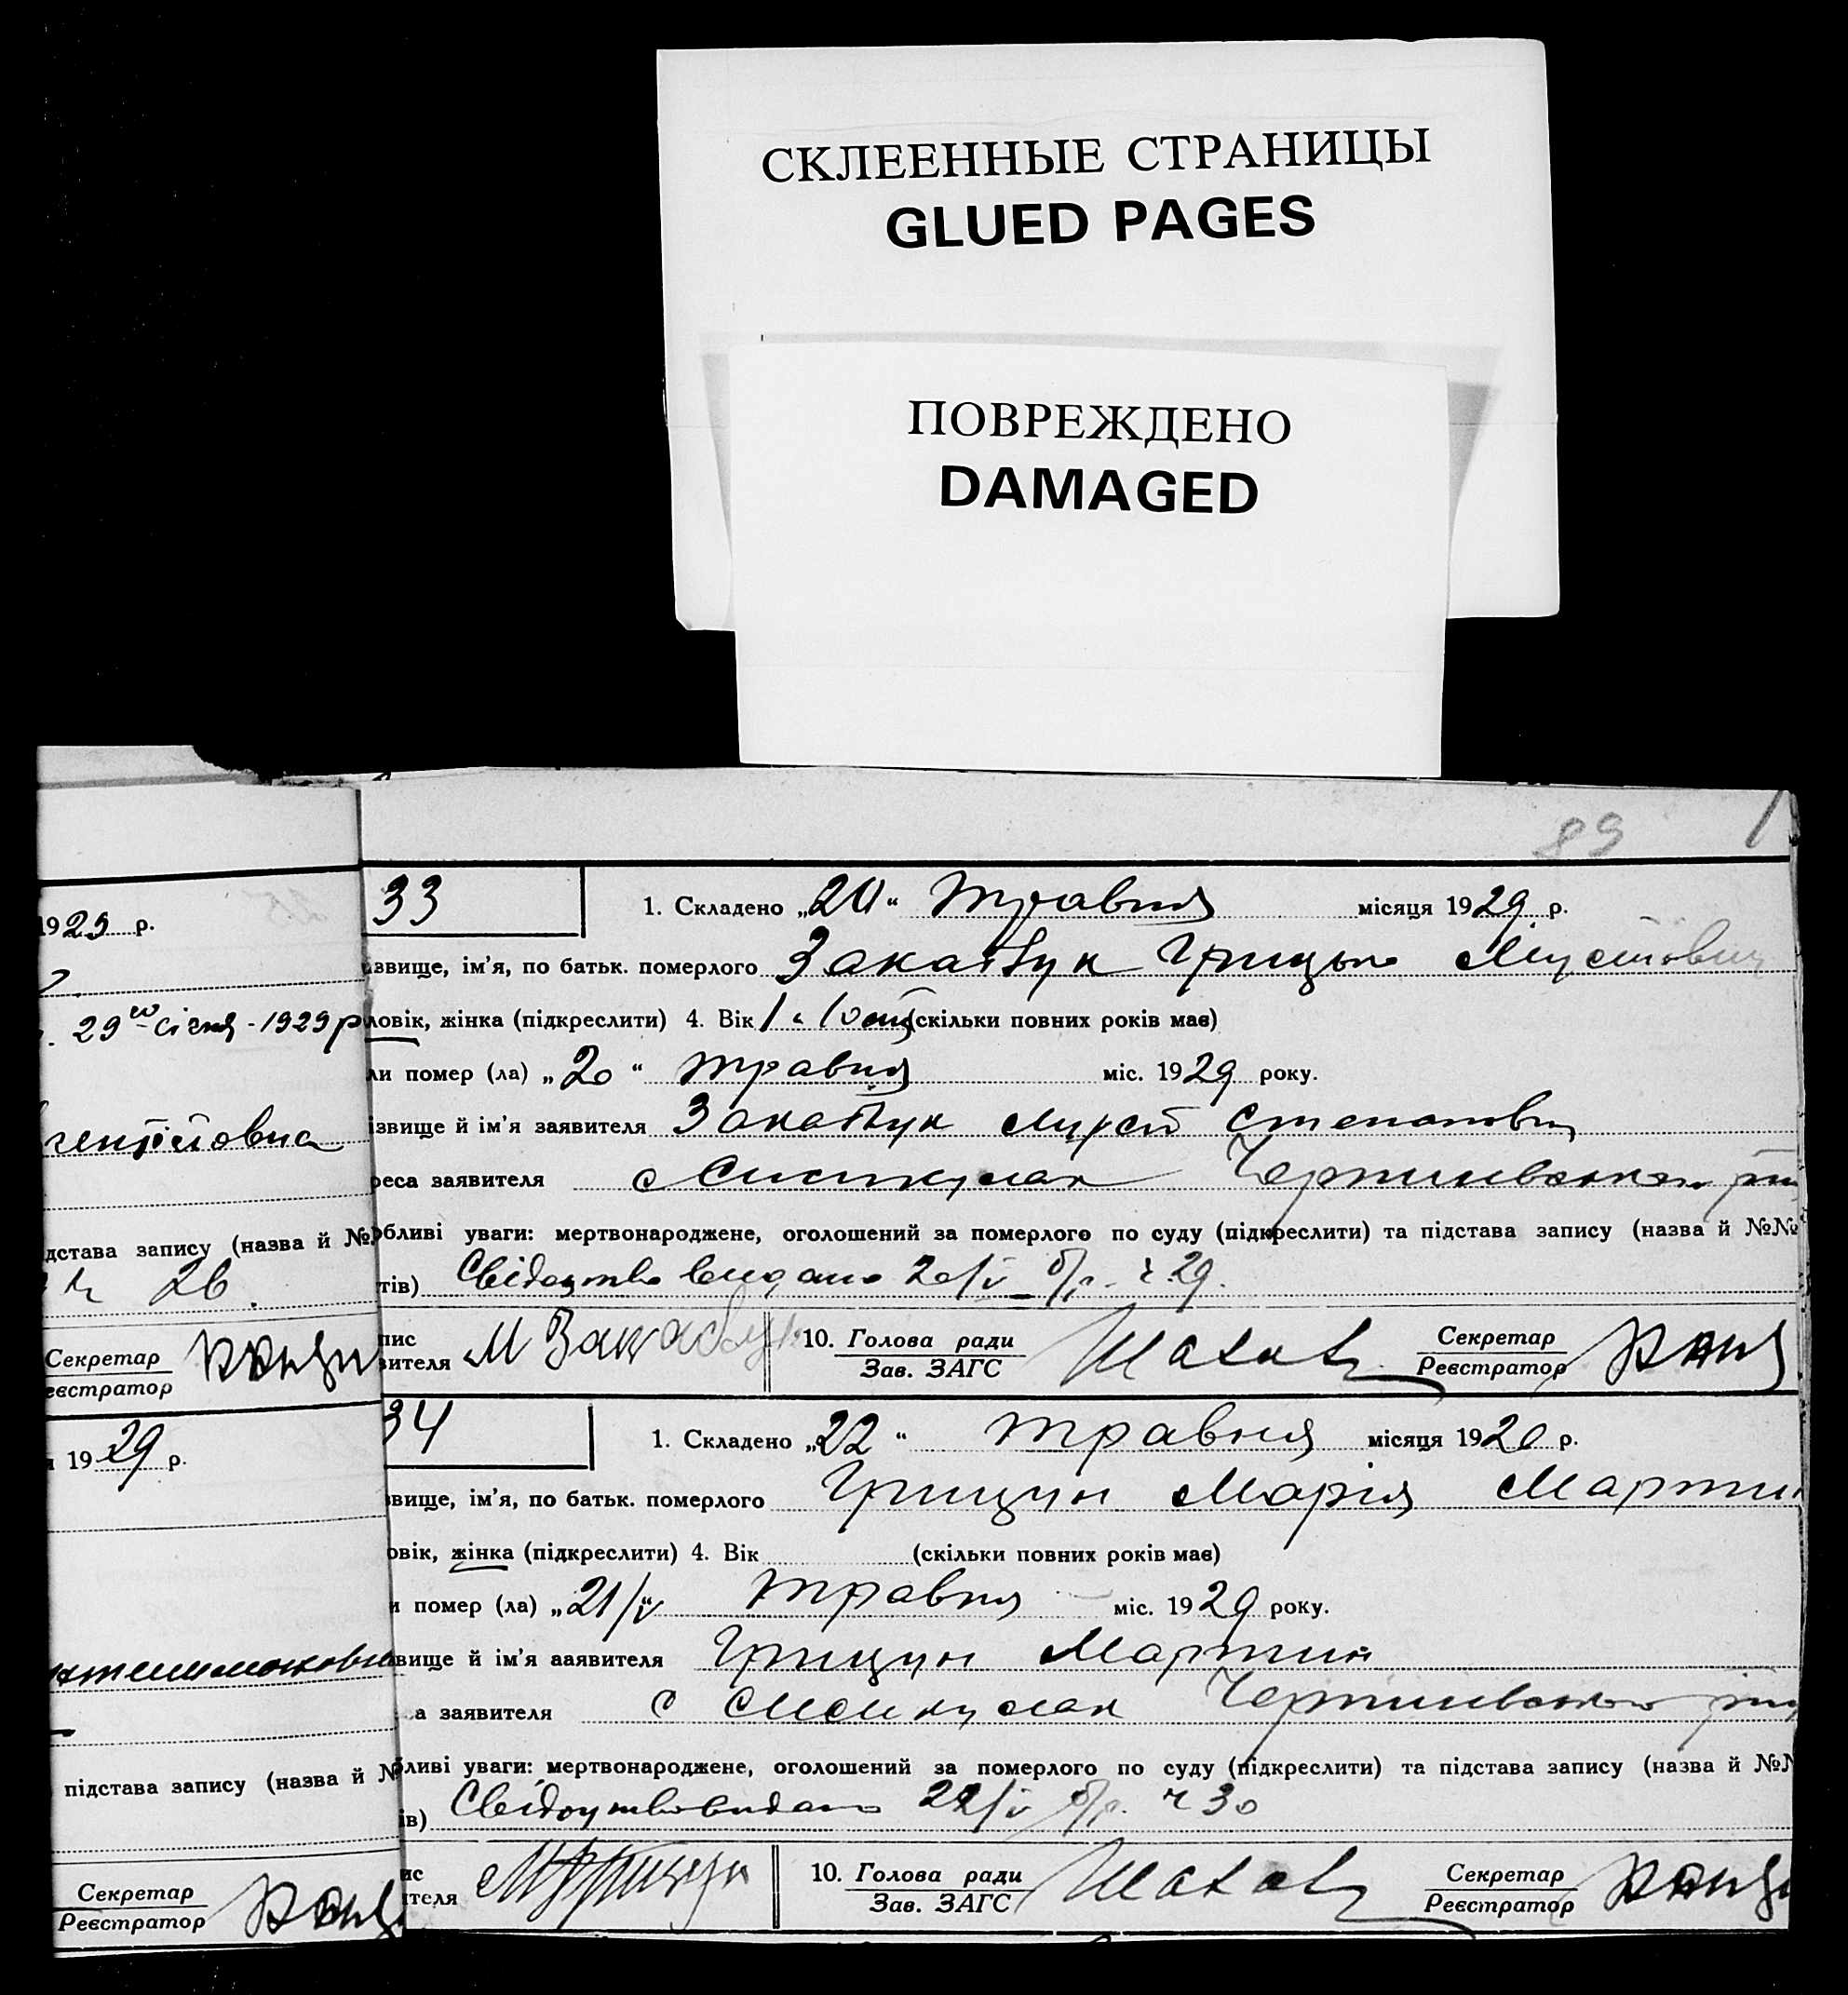 СКЛЕЕННЫЕ СТРАНИЦЫ
GLUED PAGES
ПОВРЕЖДЕНО
DAMAGED
89
1929 р.
29го січня - 1929 р
дстава запису (назва й №
ч 26.
Секретар
еєстратор
33
1. Складено „20“ травня місяця 1929 р.
звище, ім'я, по батьк. померлого Закабук Грицько
ловік, жінка (підкреслити) 4. Вік 1 (скільки повних років має)
ли помер (ла) „20“ травня міс. 1929 року.
ізвище й ім'я заявителя Закабук Мусій Степанович
реса заявителя с
обливі уваги: мертвонароджене, оголошений за померлого по суду (підкреслити) та підстава запису (назва й №№
тів) Свідоцтво видано 20/V б/р. ч. 29.
пис
вителя М Закабук
10. Голова ради
Зав. ЗАГС
Секретар
Реєстратор
я 1929 р.
підстава запису (назва й №
Секретар
Реєстратор
34
1. Складено „22“ травня місяця 1920 р.
звище, ім'я, по батьк. померлого Грицун Марія Мартин
овік, жінка (підкреслити) 4. Вік (скільки повних років має)
и помер (ла) „21/V“ травня міс. 1929 року.
вище й ім'я заявителя Грицун Мартин
а заявителя с
бливі уваги: мертвонароджене, оголошений за померлого по суду (підкреслити) та підстава запису (назва й №№
ів) Свідоцтво видано 22/V б/р. ч 30
ис
ителя
10. Голова ради
Зав. ЗАГС
Секретар
Реєстратор